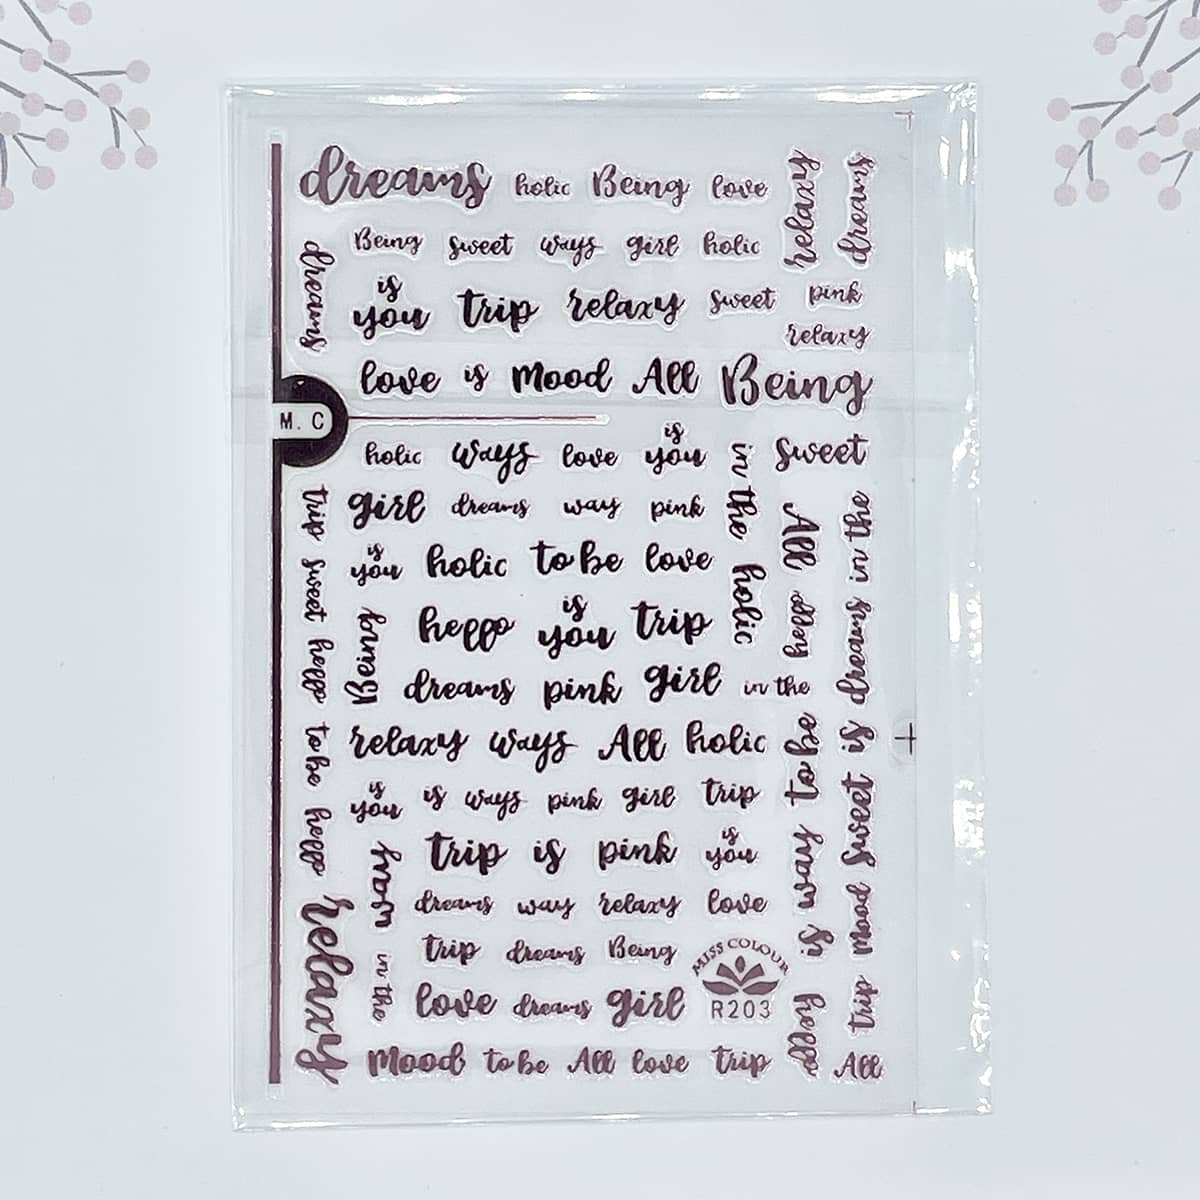 dreams holic Being love
relaxy
dreams
dreams
Being sweet ways girl holic
is
you trip relaxy sweet pink
relaxy
love is Mood All Being
M. C
holic ways love is you
in the
sweet
trip sweet hello to be hello
girl dreams way pink
All hello
dreams in the
is
you holic to be love
holic
Being
hello is you trip
dreams pink girl in the
relaxy ways All holic
to be
mood sweet is
is
you is ways pink girl trip
trip is pink is you
warm
warm is
dreams way relaxy love
relaxy
in the
trip dreams Being
MISS COLOUR
R203
love dreams girl
hello
trip
Mood to be All love trip
All